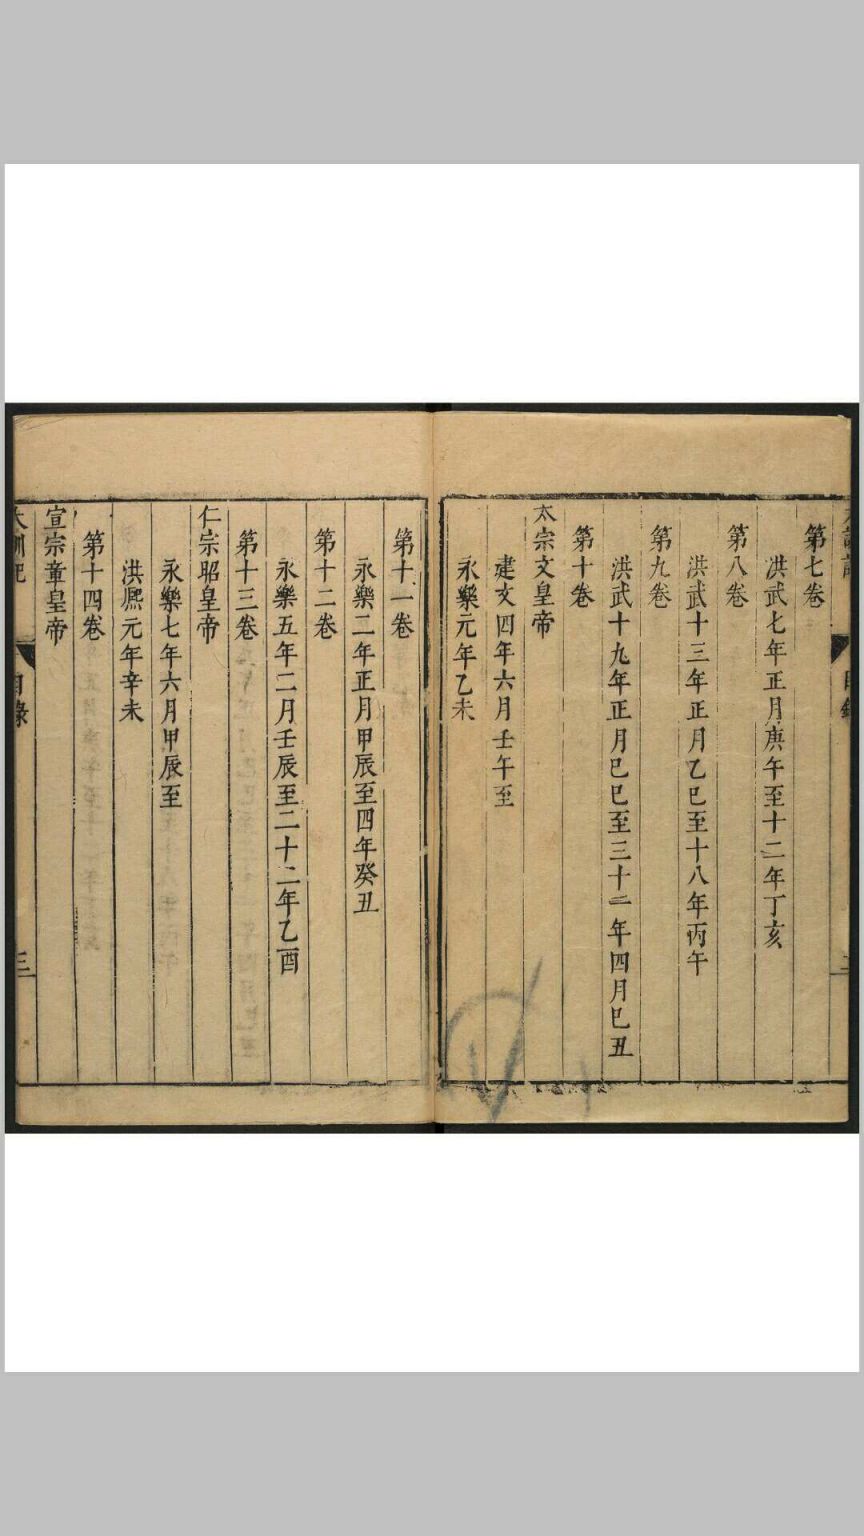 第七卷
洪武七年正月庚午至十二年丁亥
第八卷
洪武十三年正月乙巳至十八年丙午
第九卷
洪武十九年正月己巳至三十一年四月己丑
第十卷
太宗文皇帝
建文四年六月壬午至
永樂元年乙未
第十一卷
永樂二年正月甲辰至四年癸丑
第十二卷
永樂五年二月壬辰至二十二年乙酉
第十三卷
仁宗昭皇帝
永樂七年六月甲辰至
洪熙元年辛未
第十四卷
宣宗章皇帝
大訓記
目錄
三